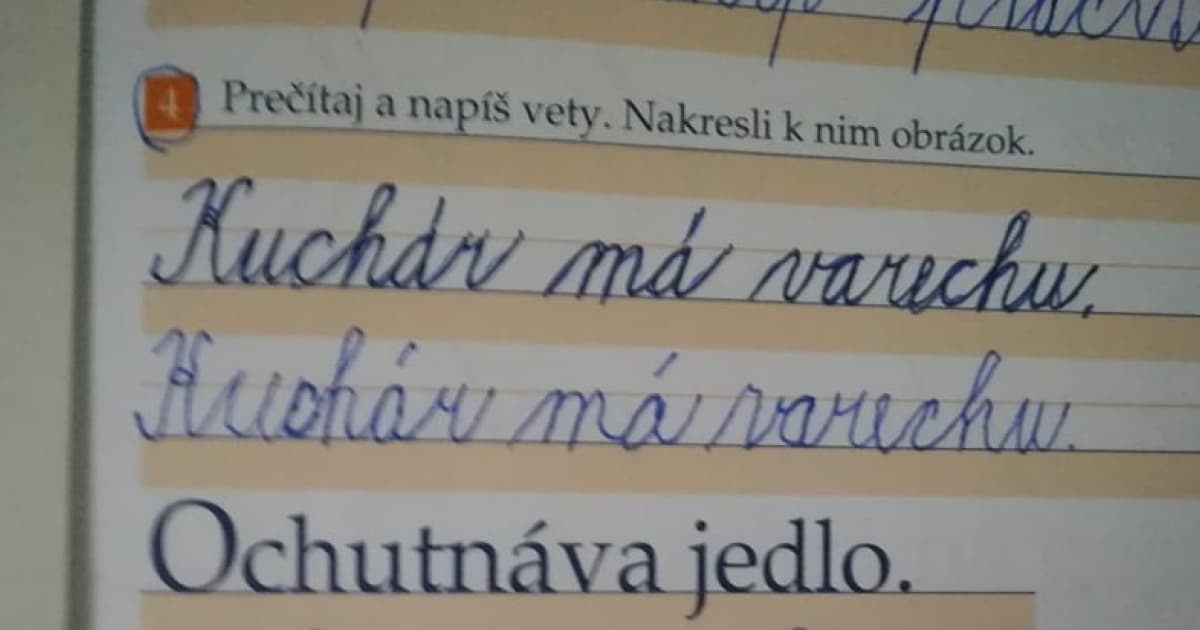 4 Prečítaj a napíš vety. Nakresli k nim obrázok.
Kuchár má varechu.
Kuchár má varechu.
Ochutnáva jedlo.